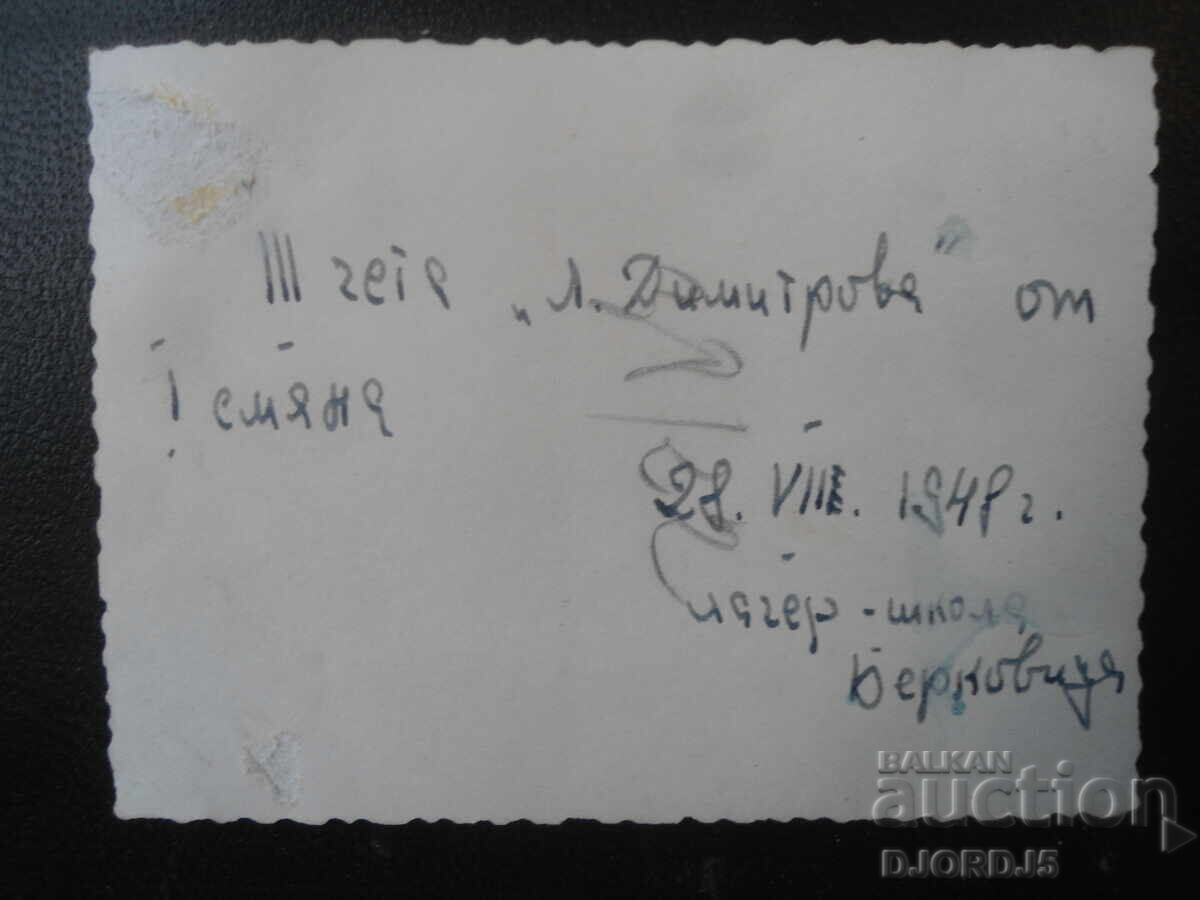 III чета „Л. Димитрова" от
I смяна
28. VIII. 1948 г.
лагер-школа
Берковица
BALKAN
auction
DJORDJ5